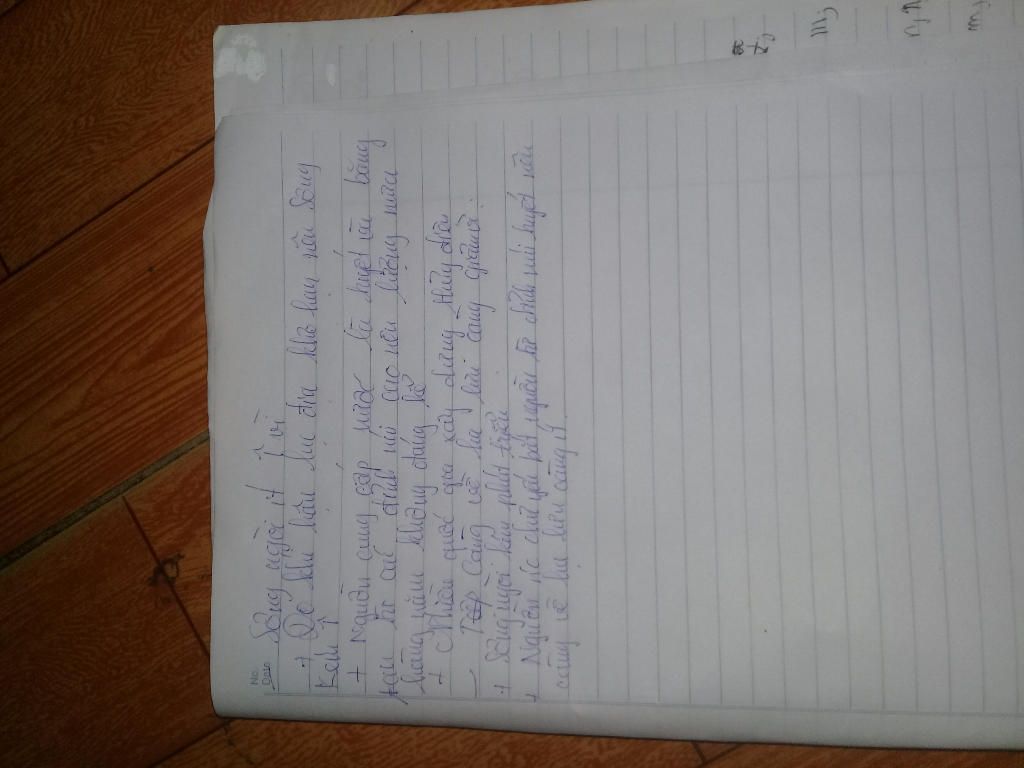 No.
Date
Sông ngòi ít vì
+ Do khí hậu lục địa khô hạn nên sông
kém ↑
+ Nguồn cung cấp nước là tuyết và băng
tan từ các đỉnh núi cao nên lượng nước
hàng năm không đáng kể
+ Nhiều quốc gia xây dựng thủy điện
- Càng về hạ lưu càng giảm:
+ Sông ngòi kém phát triển
+ Nguồn nc chủ yếu bắt nguồn từ đỉnh núi tuyết nên
càng về hạ lưu càng ít